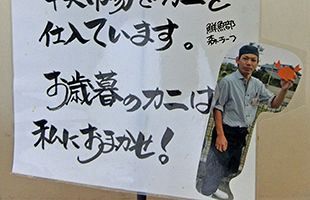 中央市場でカニを
仕入ています。
鮮魚部
お歳暮のカニは
私におまかせ!